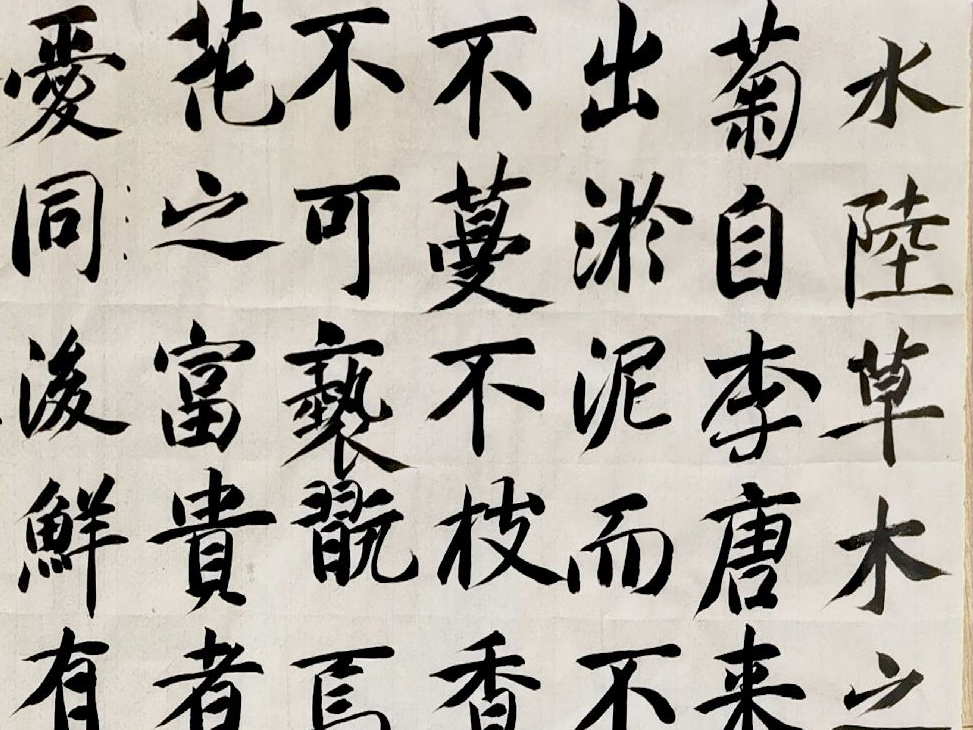 水陸草木之
菊自李唐来
出淤泥而不
不蔓不枝香
不可褻翫焉
花之富貴者
愛同後鮮有